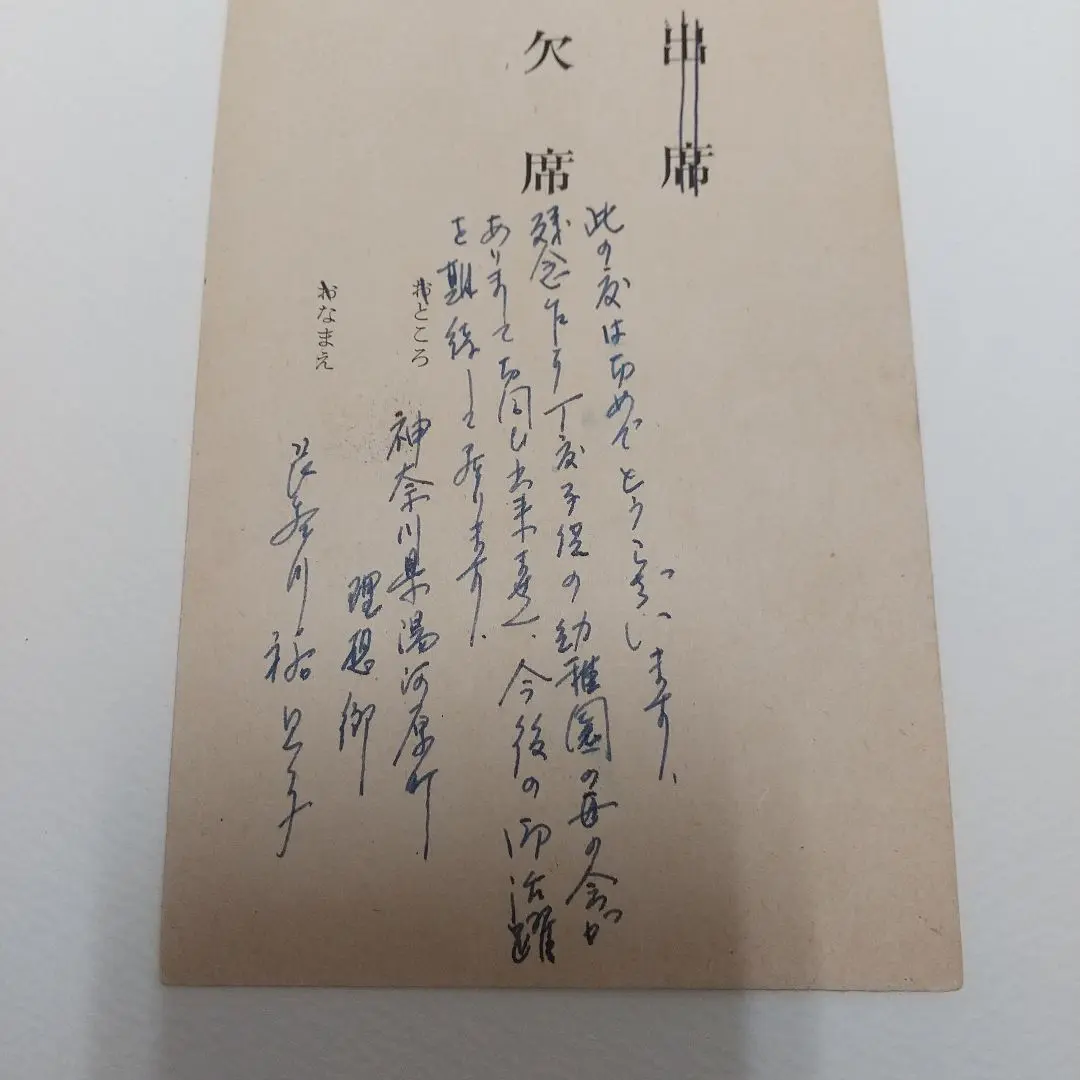 出席
欠席
此の度はお芽でとうございます、
残念乍ら丁度子供の幼稚園の母の会が
ありましてお伺い出来ません、今後の御活躍
を期待して居ります、
おところ
神奈川県湯河原町
理想郷
おなまえ
長谷川裕